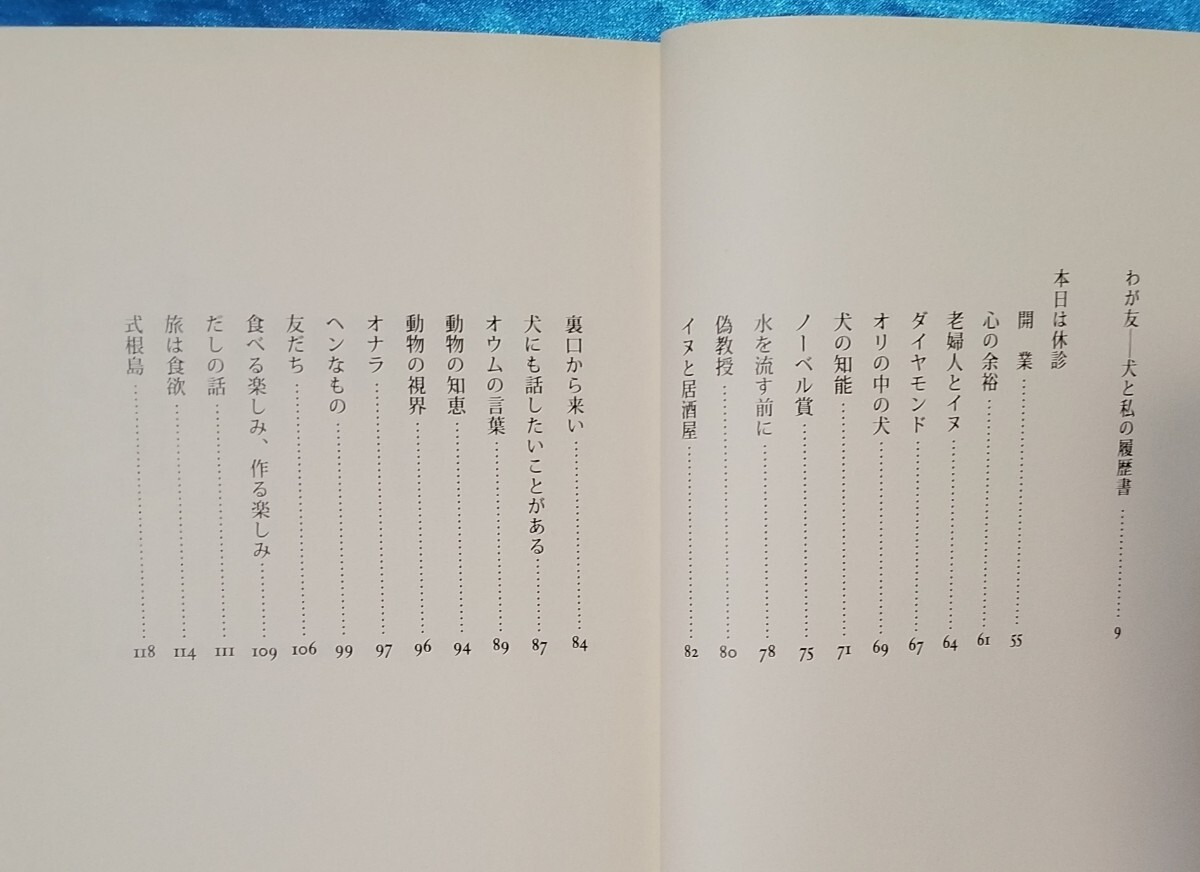 わが友――犬と私の履歴書……………9
本日は休診
開業……………………………55
心の余裕…………………………61
老婦人とイヌ……………………64
ダイヤモンド……………………67
オリの中の犬……………………69
犬の知能…………………………71
ノーベル賞………………………75
水を流す前に……………………78
偽教授……………………………80
イヌと居酒屋……………………82
裏口から来い……………………84
犬にも話したいことがある………87
オウムの言葉……………………89
動物の知恵………………………94
動物の視界………………………96
オナラ……………………………97
ヘンなもの………………………99
友だち……………………………106
食べる楽しみ、作る楽しみ………109
だしの話…………………………111
旅は食欲…………………………114
式根島……………………………118